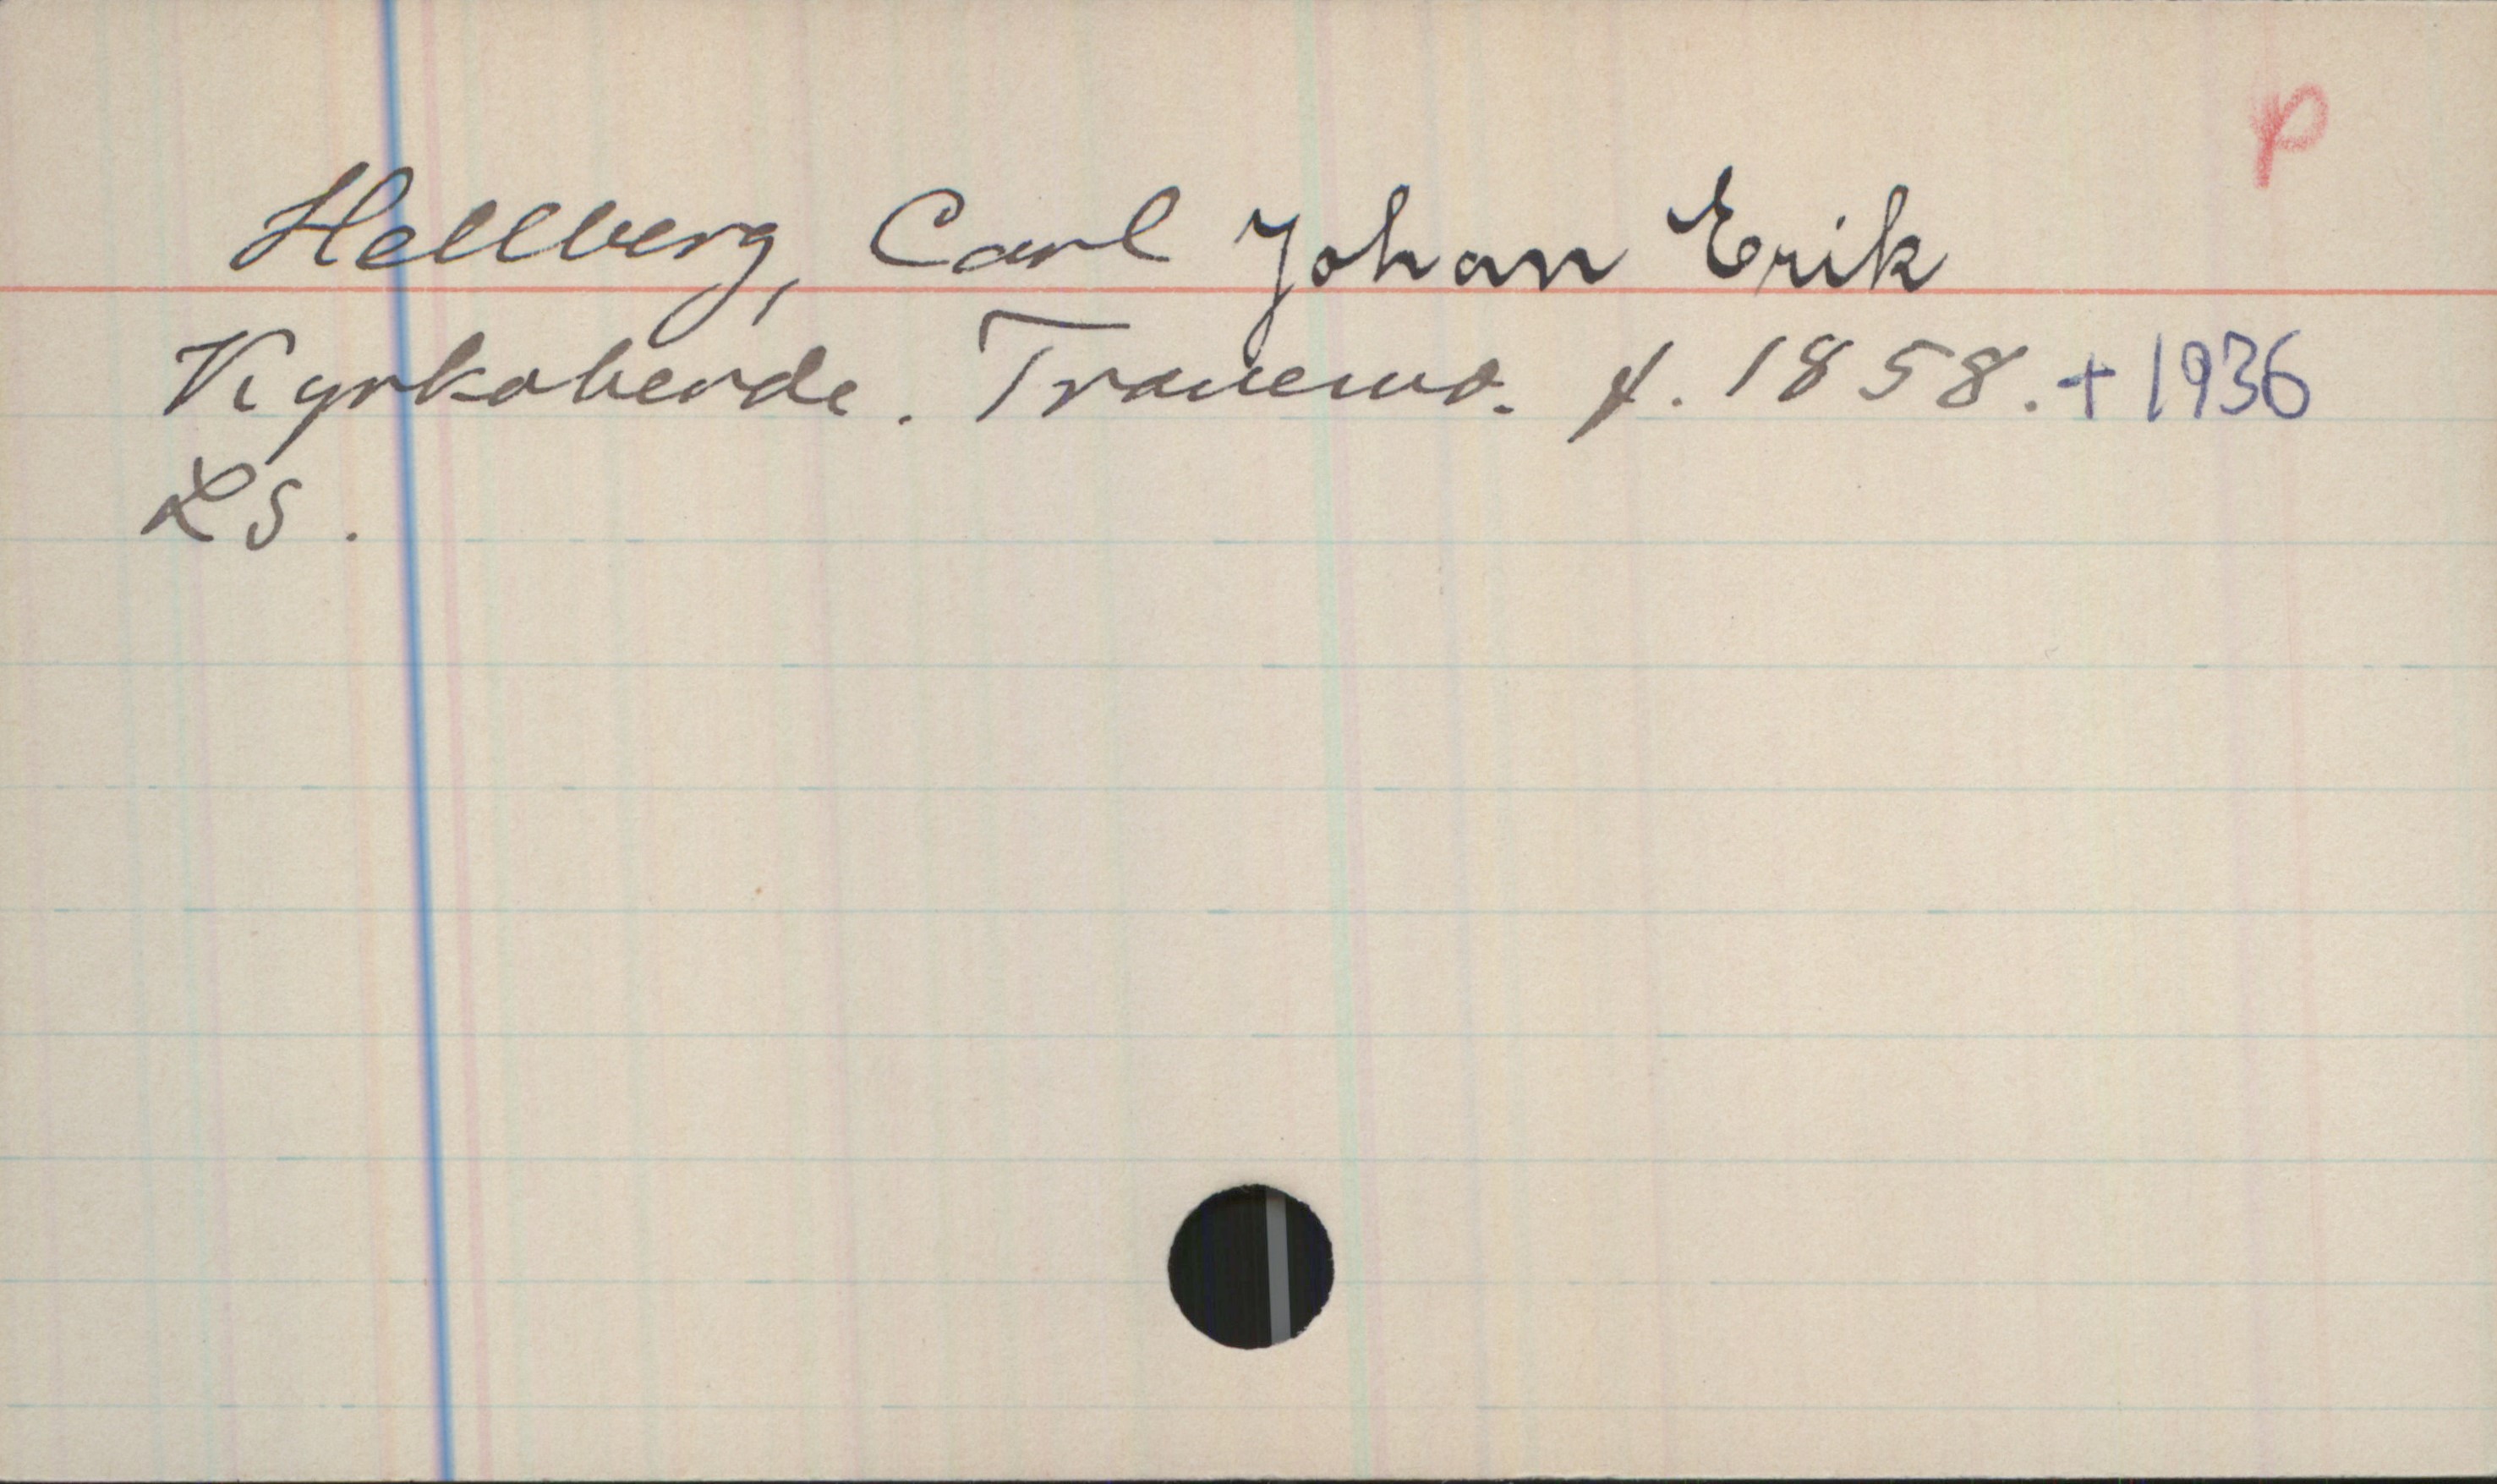 p
Hellberg, Carl Johan Erik
Kyrkoherde. Tranemo. f. 1858. + 1936
LS.